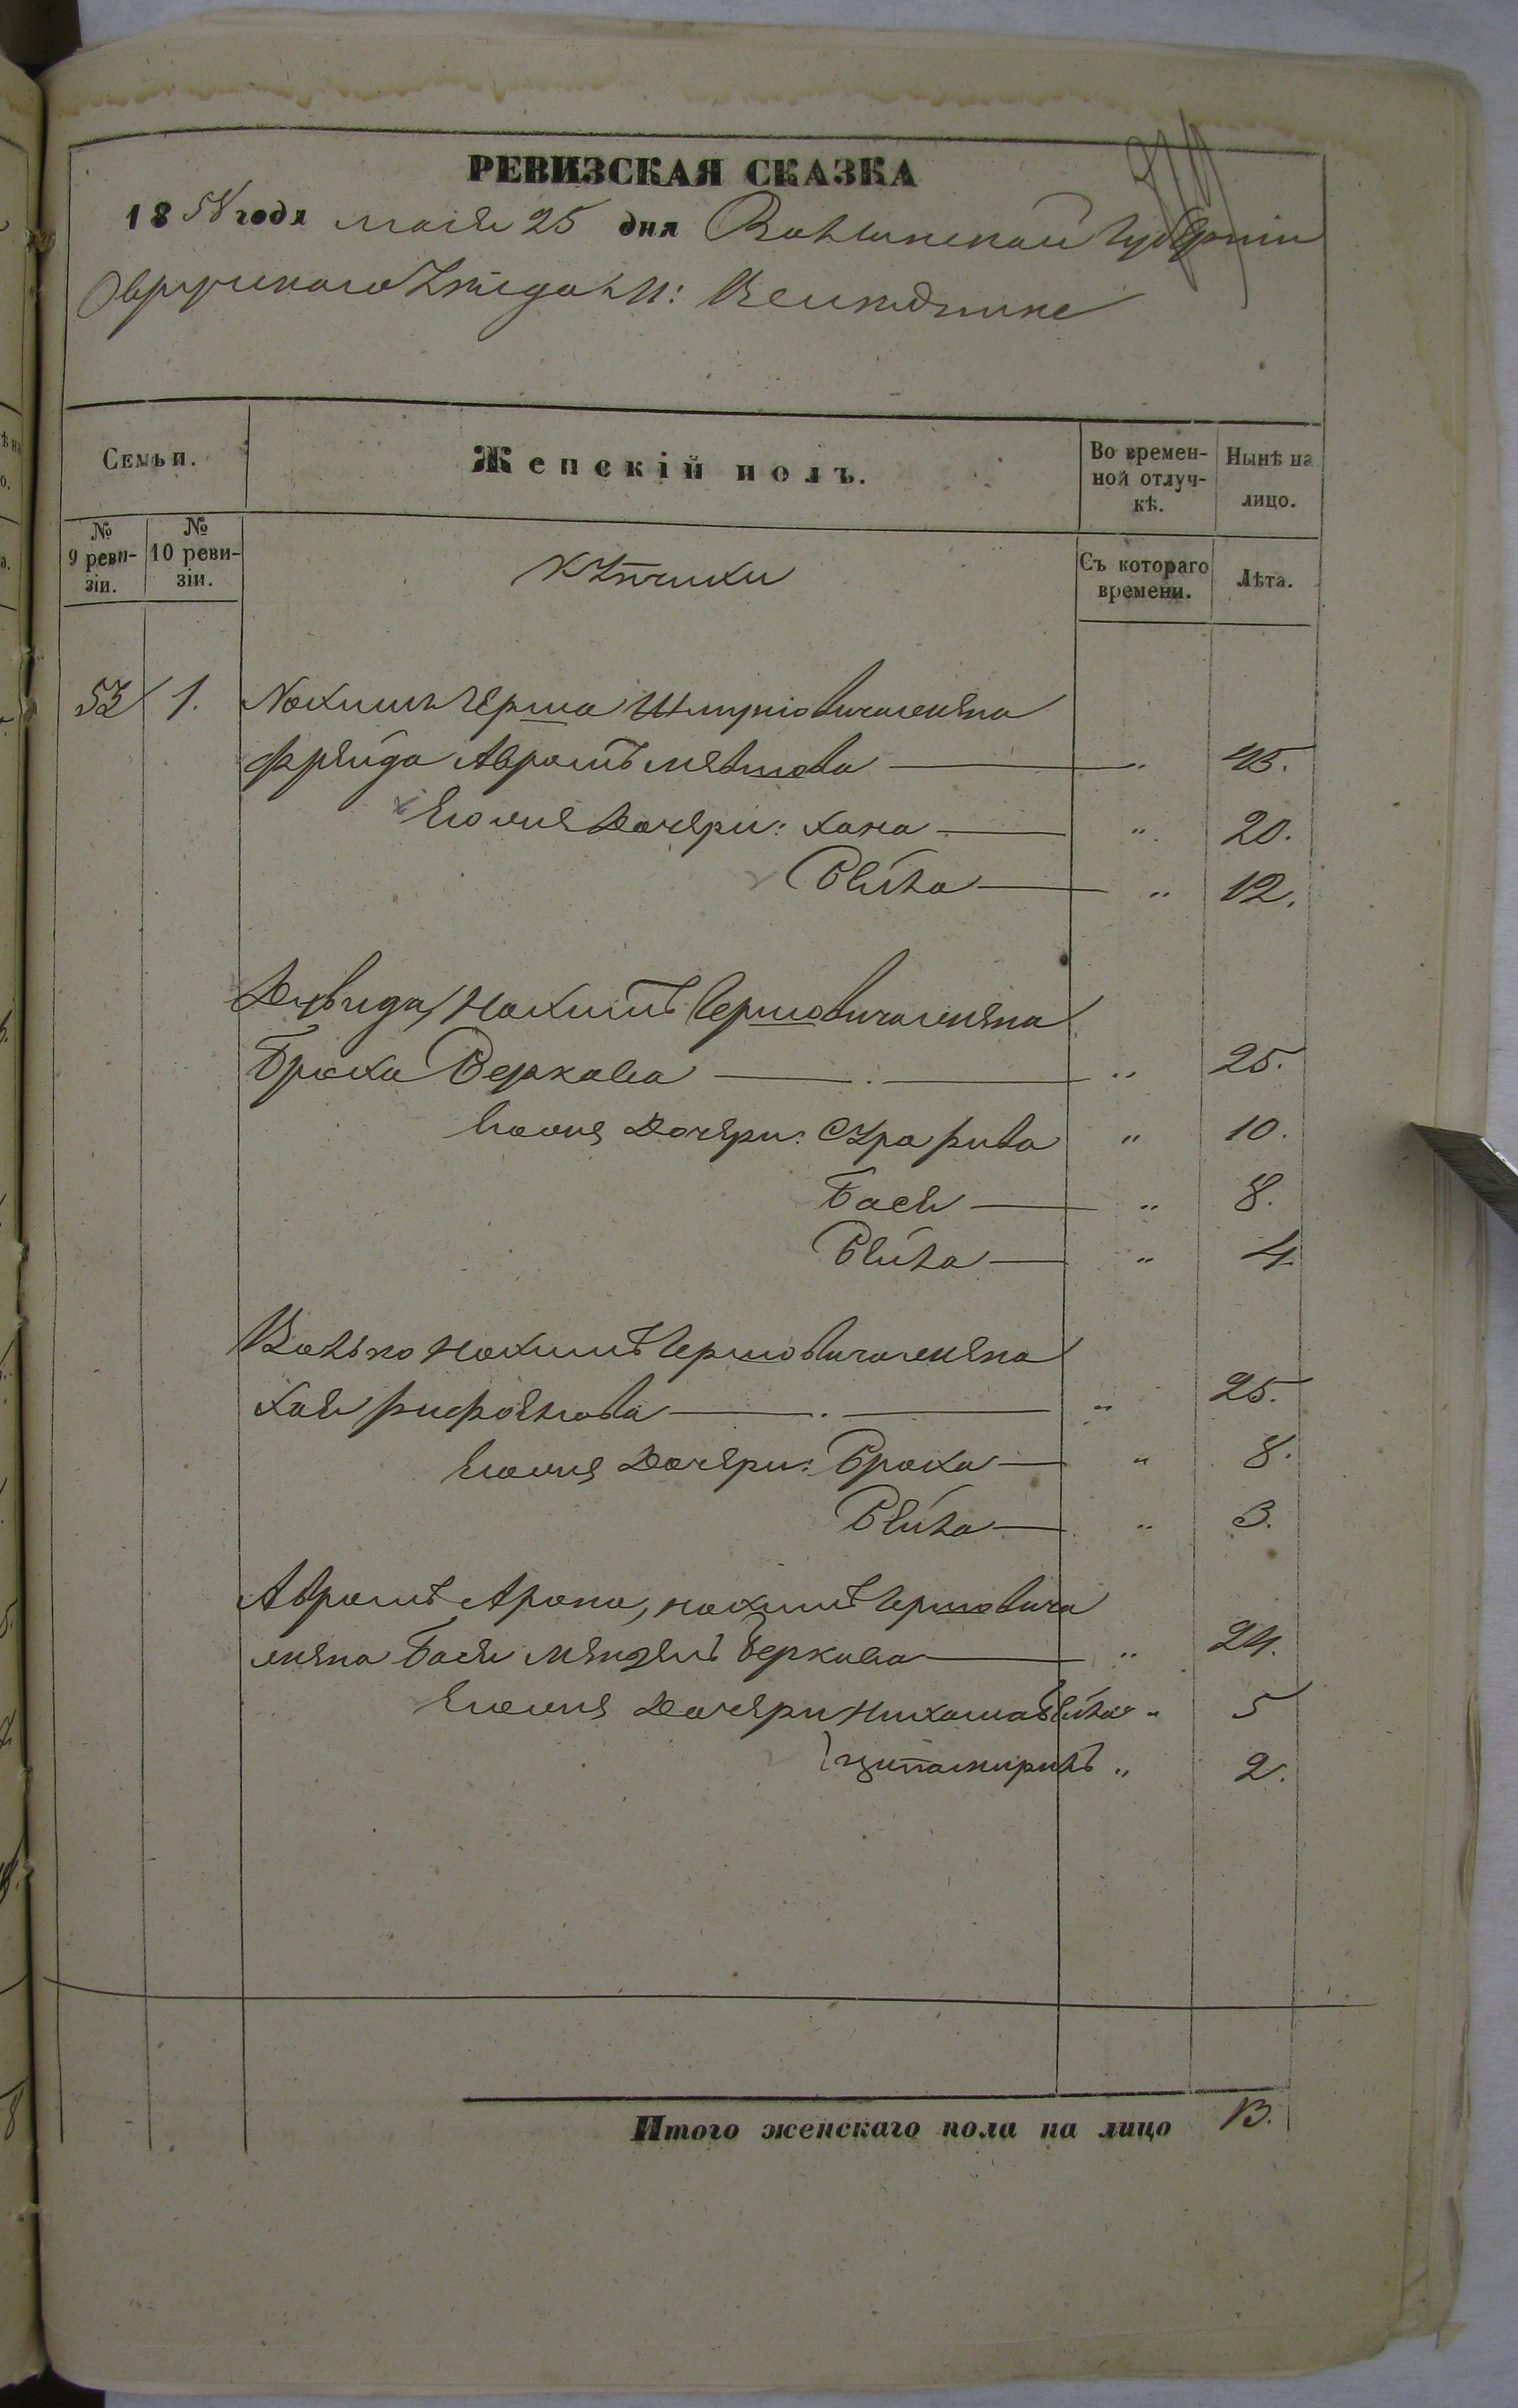 РЕВИЗСКАЯ СКАЗКА
1858 года маія 25 дня Волынской Губерніи
Овручскаго Уезда М:
Семьи.
Женскій полъ.
Во времен-
ной отлуч-
кѣ.
Нынѣ на
лицо.
№
9 реви-
зіи.
№
10 реви-
зіи.
Съ котораго
времени.
Лѣта.
53 1. Нохимъ Герша Шмуліовича жена
Фрейда Аврамъ " 45.
Его дочери: Хана " 20.
Бейла " 12.
Давида, Нохимъ Гершовича жена
Броха Беркова " 25.
Его дочери: Сура Рива " 10.
Бася " 8.
Бейла " 4.
Волько Нохимъ Гершовича жена
Хая " 25.
Его дочери: Броха " 8.
Бейла " 3.
Аврамъ Арона, Нохимъ Гершовича
жена Бася Мендель Беркова " 24.
Его дочери Бейла " 5
" 2.
Итого женскаго пола на лицо 13.